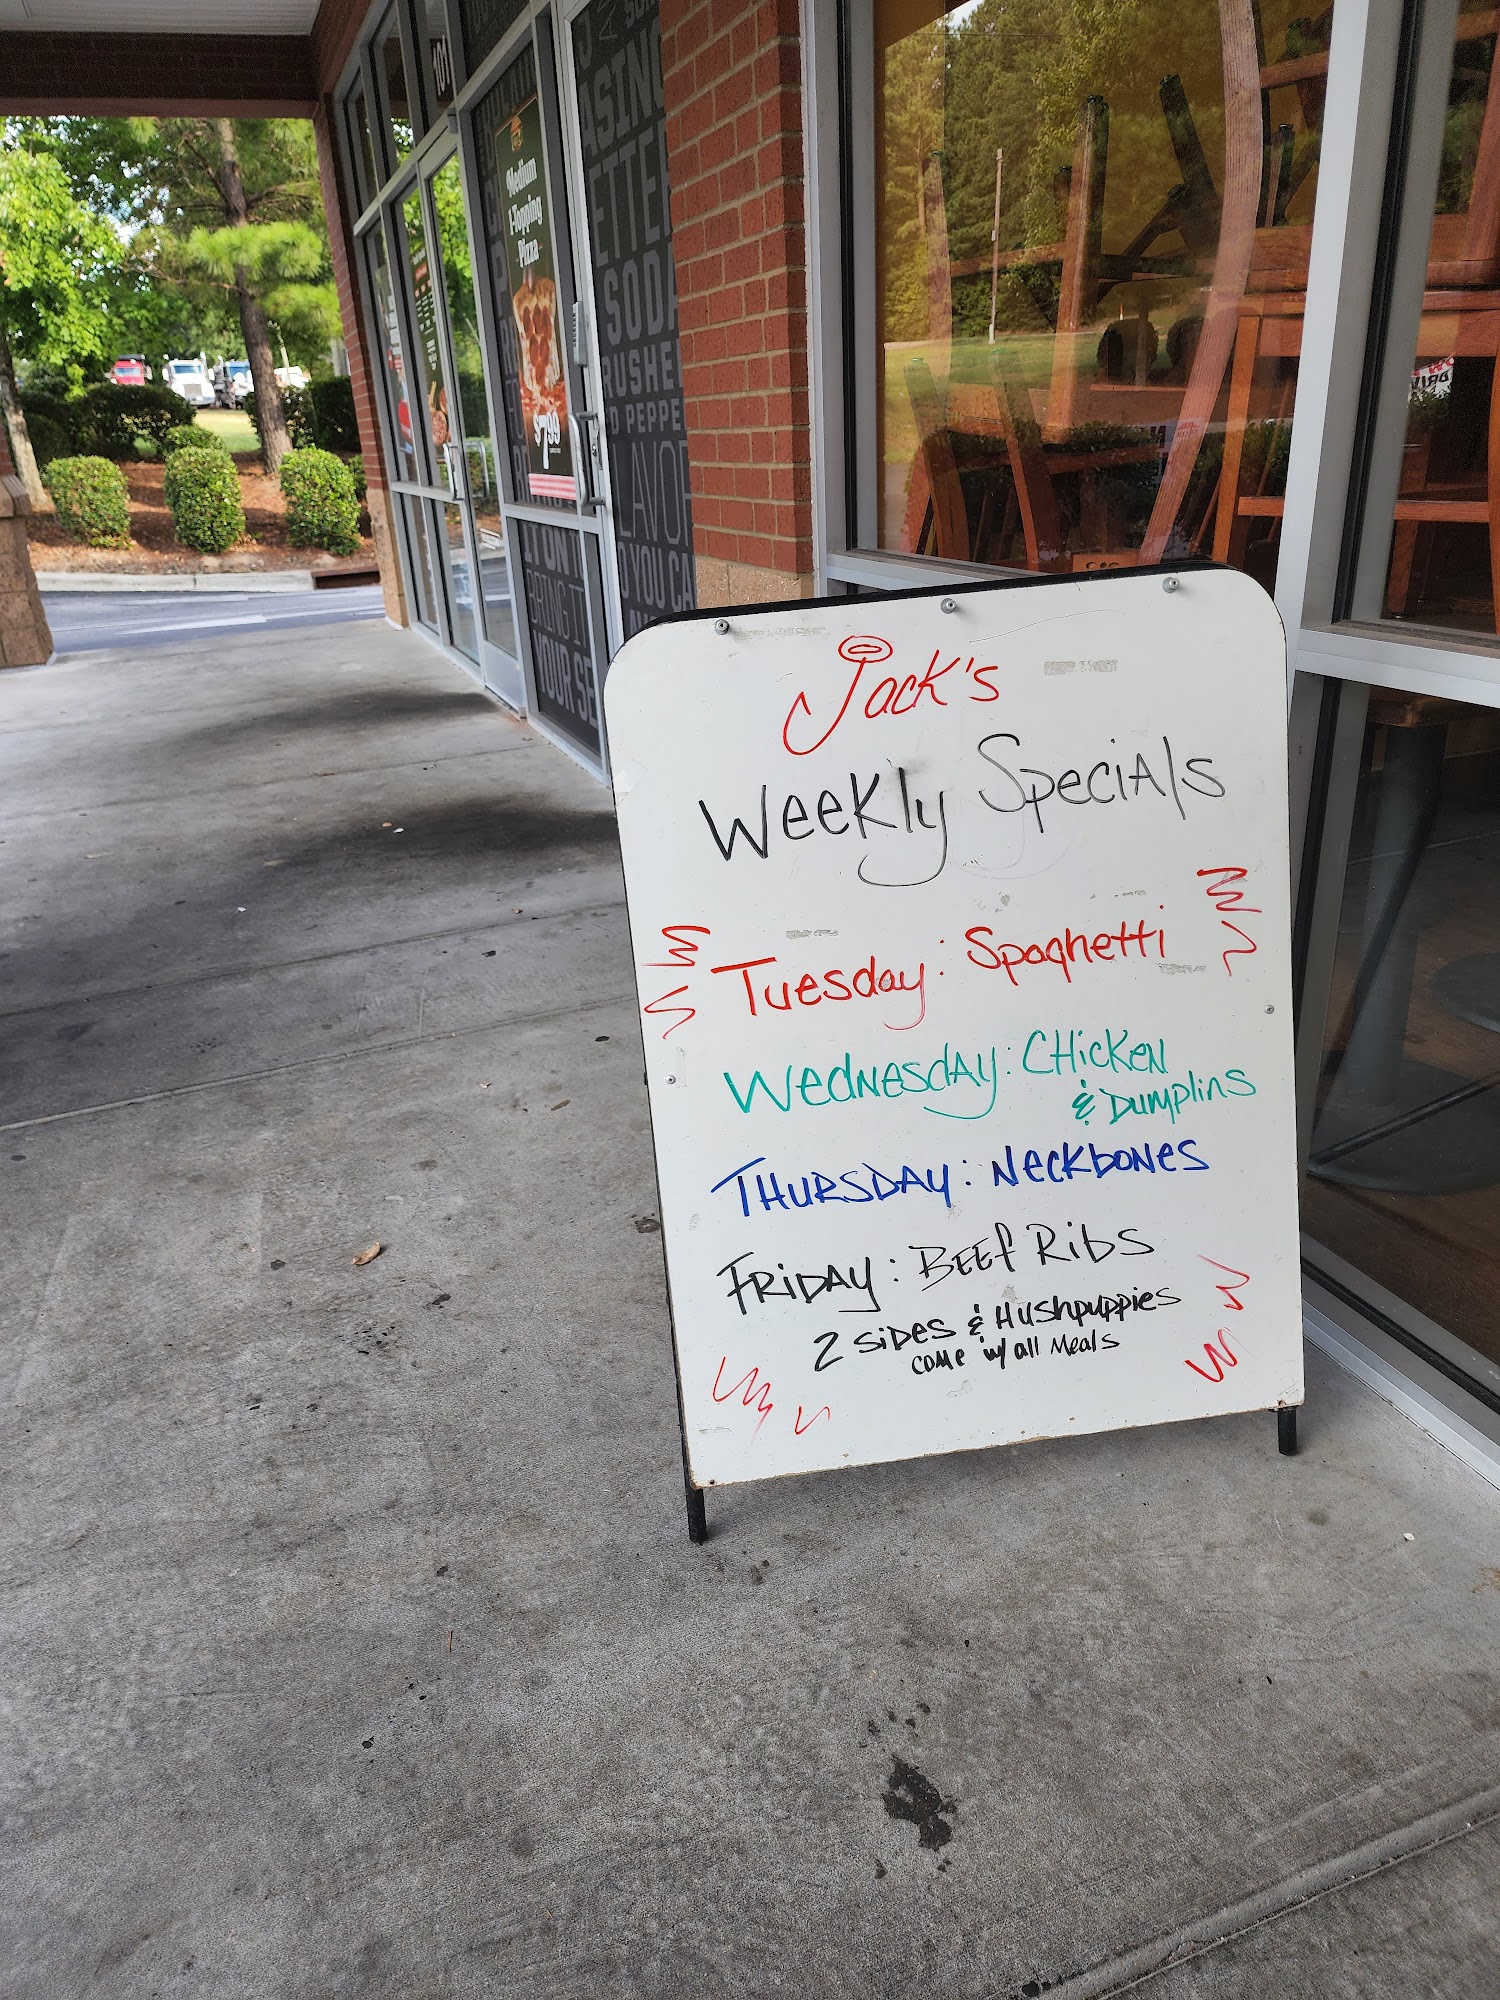 101
Medium
1-Topping
Pizza
$7.99
SODA
YOU CA
YOUR SE
Jack's
Weekly Specials
Tuesday: Spaghetti
Wednesday: Chicken
& Dumplins
Thursday: Neckbones
Friday: Beef Ribs
2 sides & Hushpuppies
come w/ all Meals